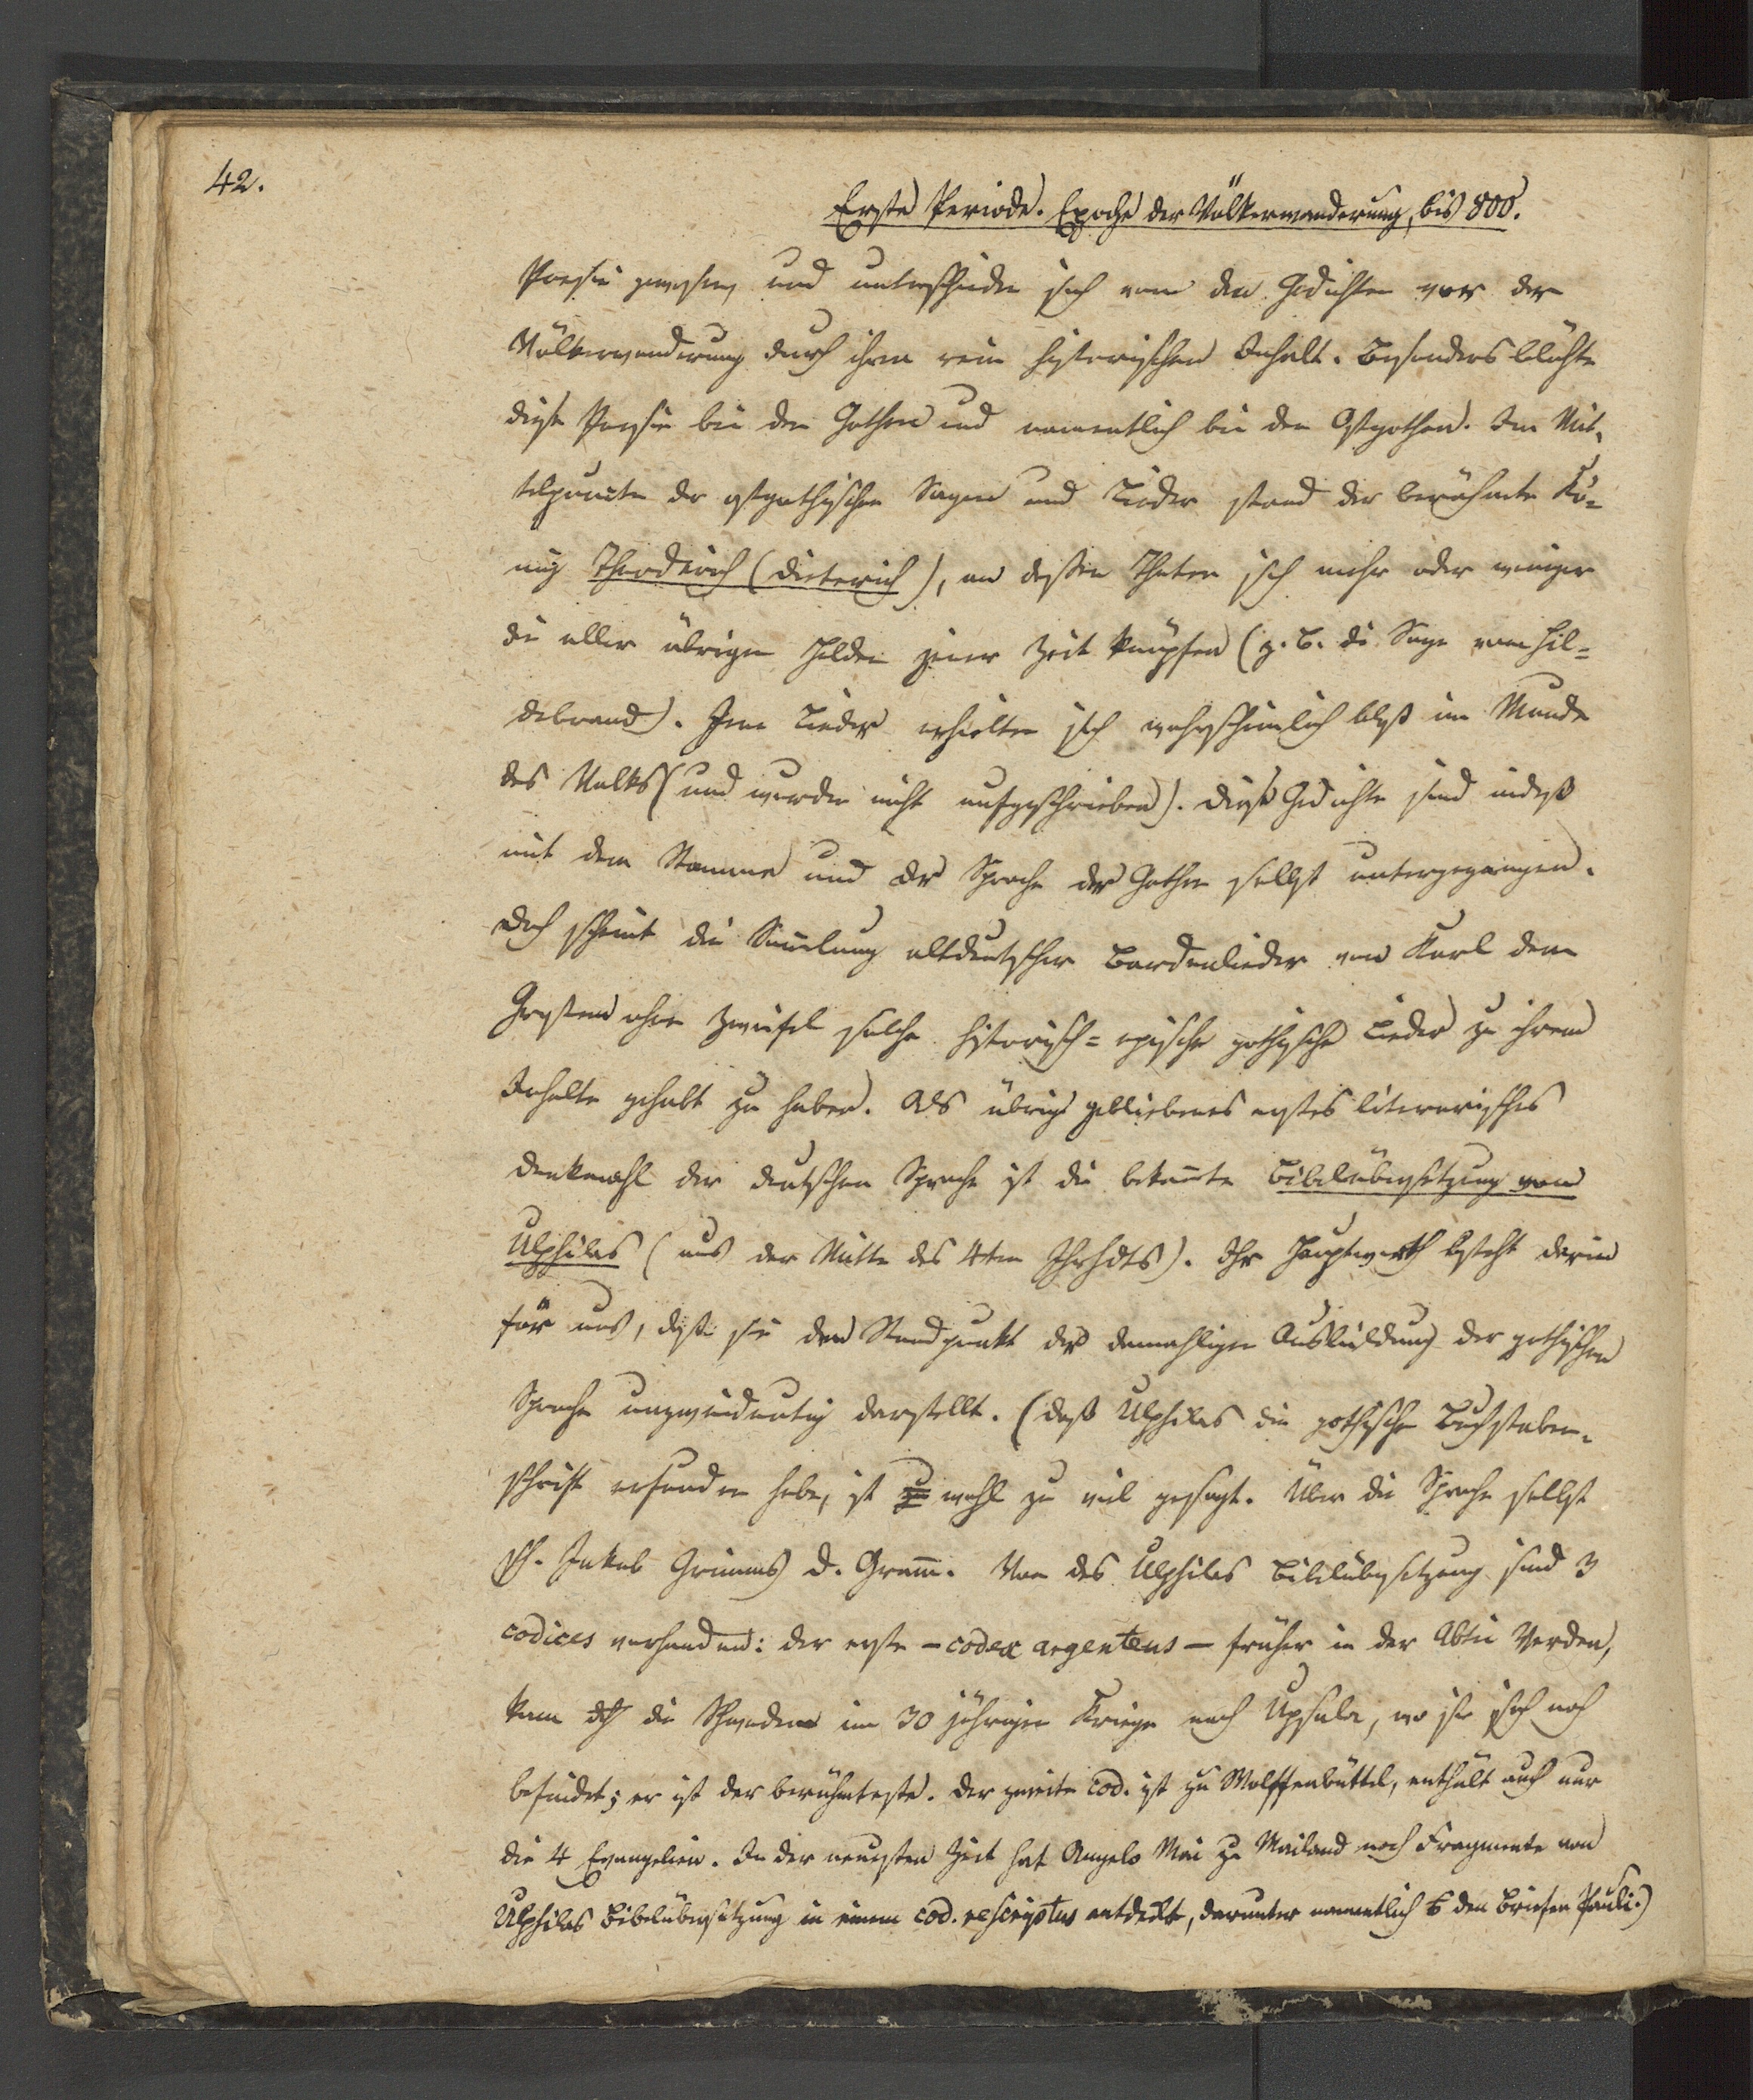 42.
Erste Periode. Epoche der Völkerwanderung, bis 800.
Poesie gewesen, und unterschieden sich von den Gedichten vor der
Völkerwanderung durch ihren rein historischen Inhalt. Besonders blühte
diese Poesie bei den Gothen und namentlich bei den Ostgothen. Im Mit-
telpuncte der ostgothischen Sagen und Lieder stand der berühmte Kö-
nig Theoderich (Dieterich), an dessen Thaten sich mehr oder weniger
die aller übrigen Helden jener Zeit knüpfen (z. B. die Sage vom Hil-
debrand). Jene Lieder erhielten sich wahrscheinlich bloß im Munde
des Volks (und wurden nicht aufgeschrieben). Diese Gedichte sind indeß
mit dem Stamme und der Sprache der Gothen selbst untergegangen.
Doch scheint die Sam̅lung altdeutscher Bardenlieder von Karl dem
Großen ohne Zweifel solche historisch-epische gothische Lieder zu ihrem
Inhalte gehabt zu haben. Als übrig gebliebenes erstes literarisches
Denkmahl der deutschen Sprache ist die bekan̅te Bibelübersetzung von
Ulphilas (aus der Mitte des 4ten Jhrhdts). Ihr Hauptwerth besteht darin
für uns, daß sie den Standpunkt der damahligen Ausbildung der gothischen
Sprache unzweideutig darstellt. (Daß Ulphilas die gothische Buchstaben-
schrift erfunden habe, ist wohl zu viel gesagt. Über die Sprache selbst
s. Jakob Grimms d. Gram̅. Von des Ulphilas Bibelübersetzung sind 3
codices vorhanden: der erste – codex argenteus – früher in der Abtei Verden,
kam dch die Schweden im 30 jährigen Kriege nach Upsala, wo sie sich noch
befindet; er ist der berühmteste. Der zweite cod. ist zu Wolffenbüttel, enthält auch nur
die 4 Evangelien. In der neuesten Zeit hat Angelo Mai zu Mailand noch Fragmente von
Ulphilas Bibelübersetzung in einem cod. rescriptus entdeckt, darunter namentlich den Briefen Pauli.)